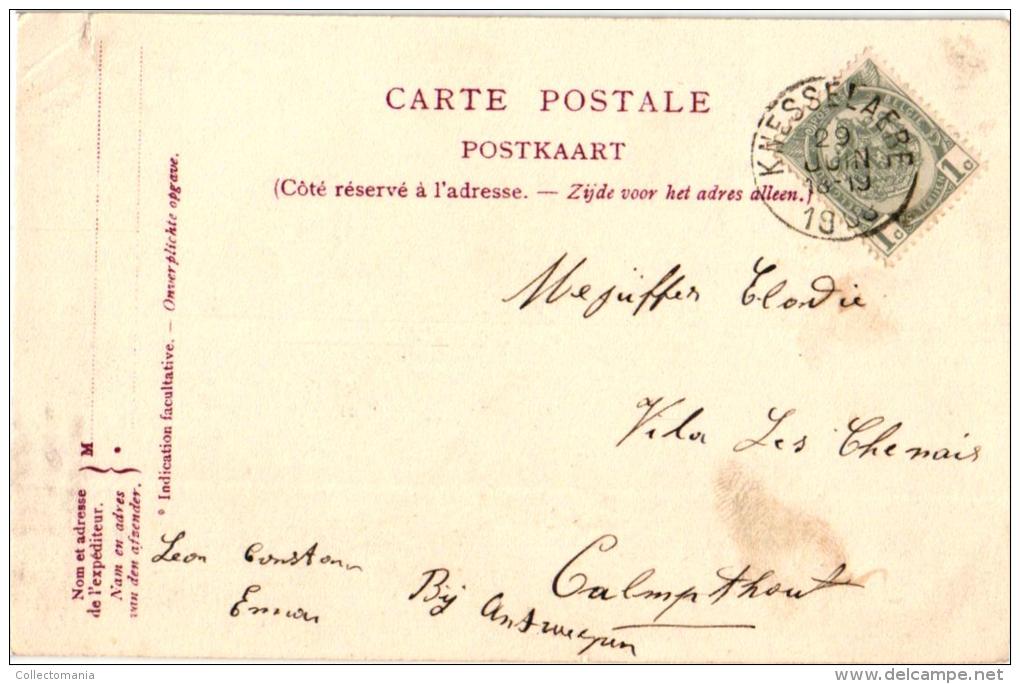 CARTE POSTALE
POSTKAART
(Côté réservé à l'adresse. — Zijde voor het adres alleen.)
KNESSELAERE
29
JUIN
18-19
1903
BELGIE
1c
1c
Mejuffer Elodie
Vila Les Chenais
Calmpthout
Bij Antwerpen
Leon Constan
Emma
° Indication facultative. — Onverplichte opgave.
M
Nom et adresse
de l'expéditeur.
Nam en adres
van den afzender.
Collectomania
delcampe.net